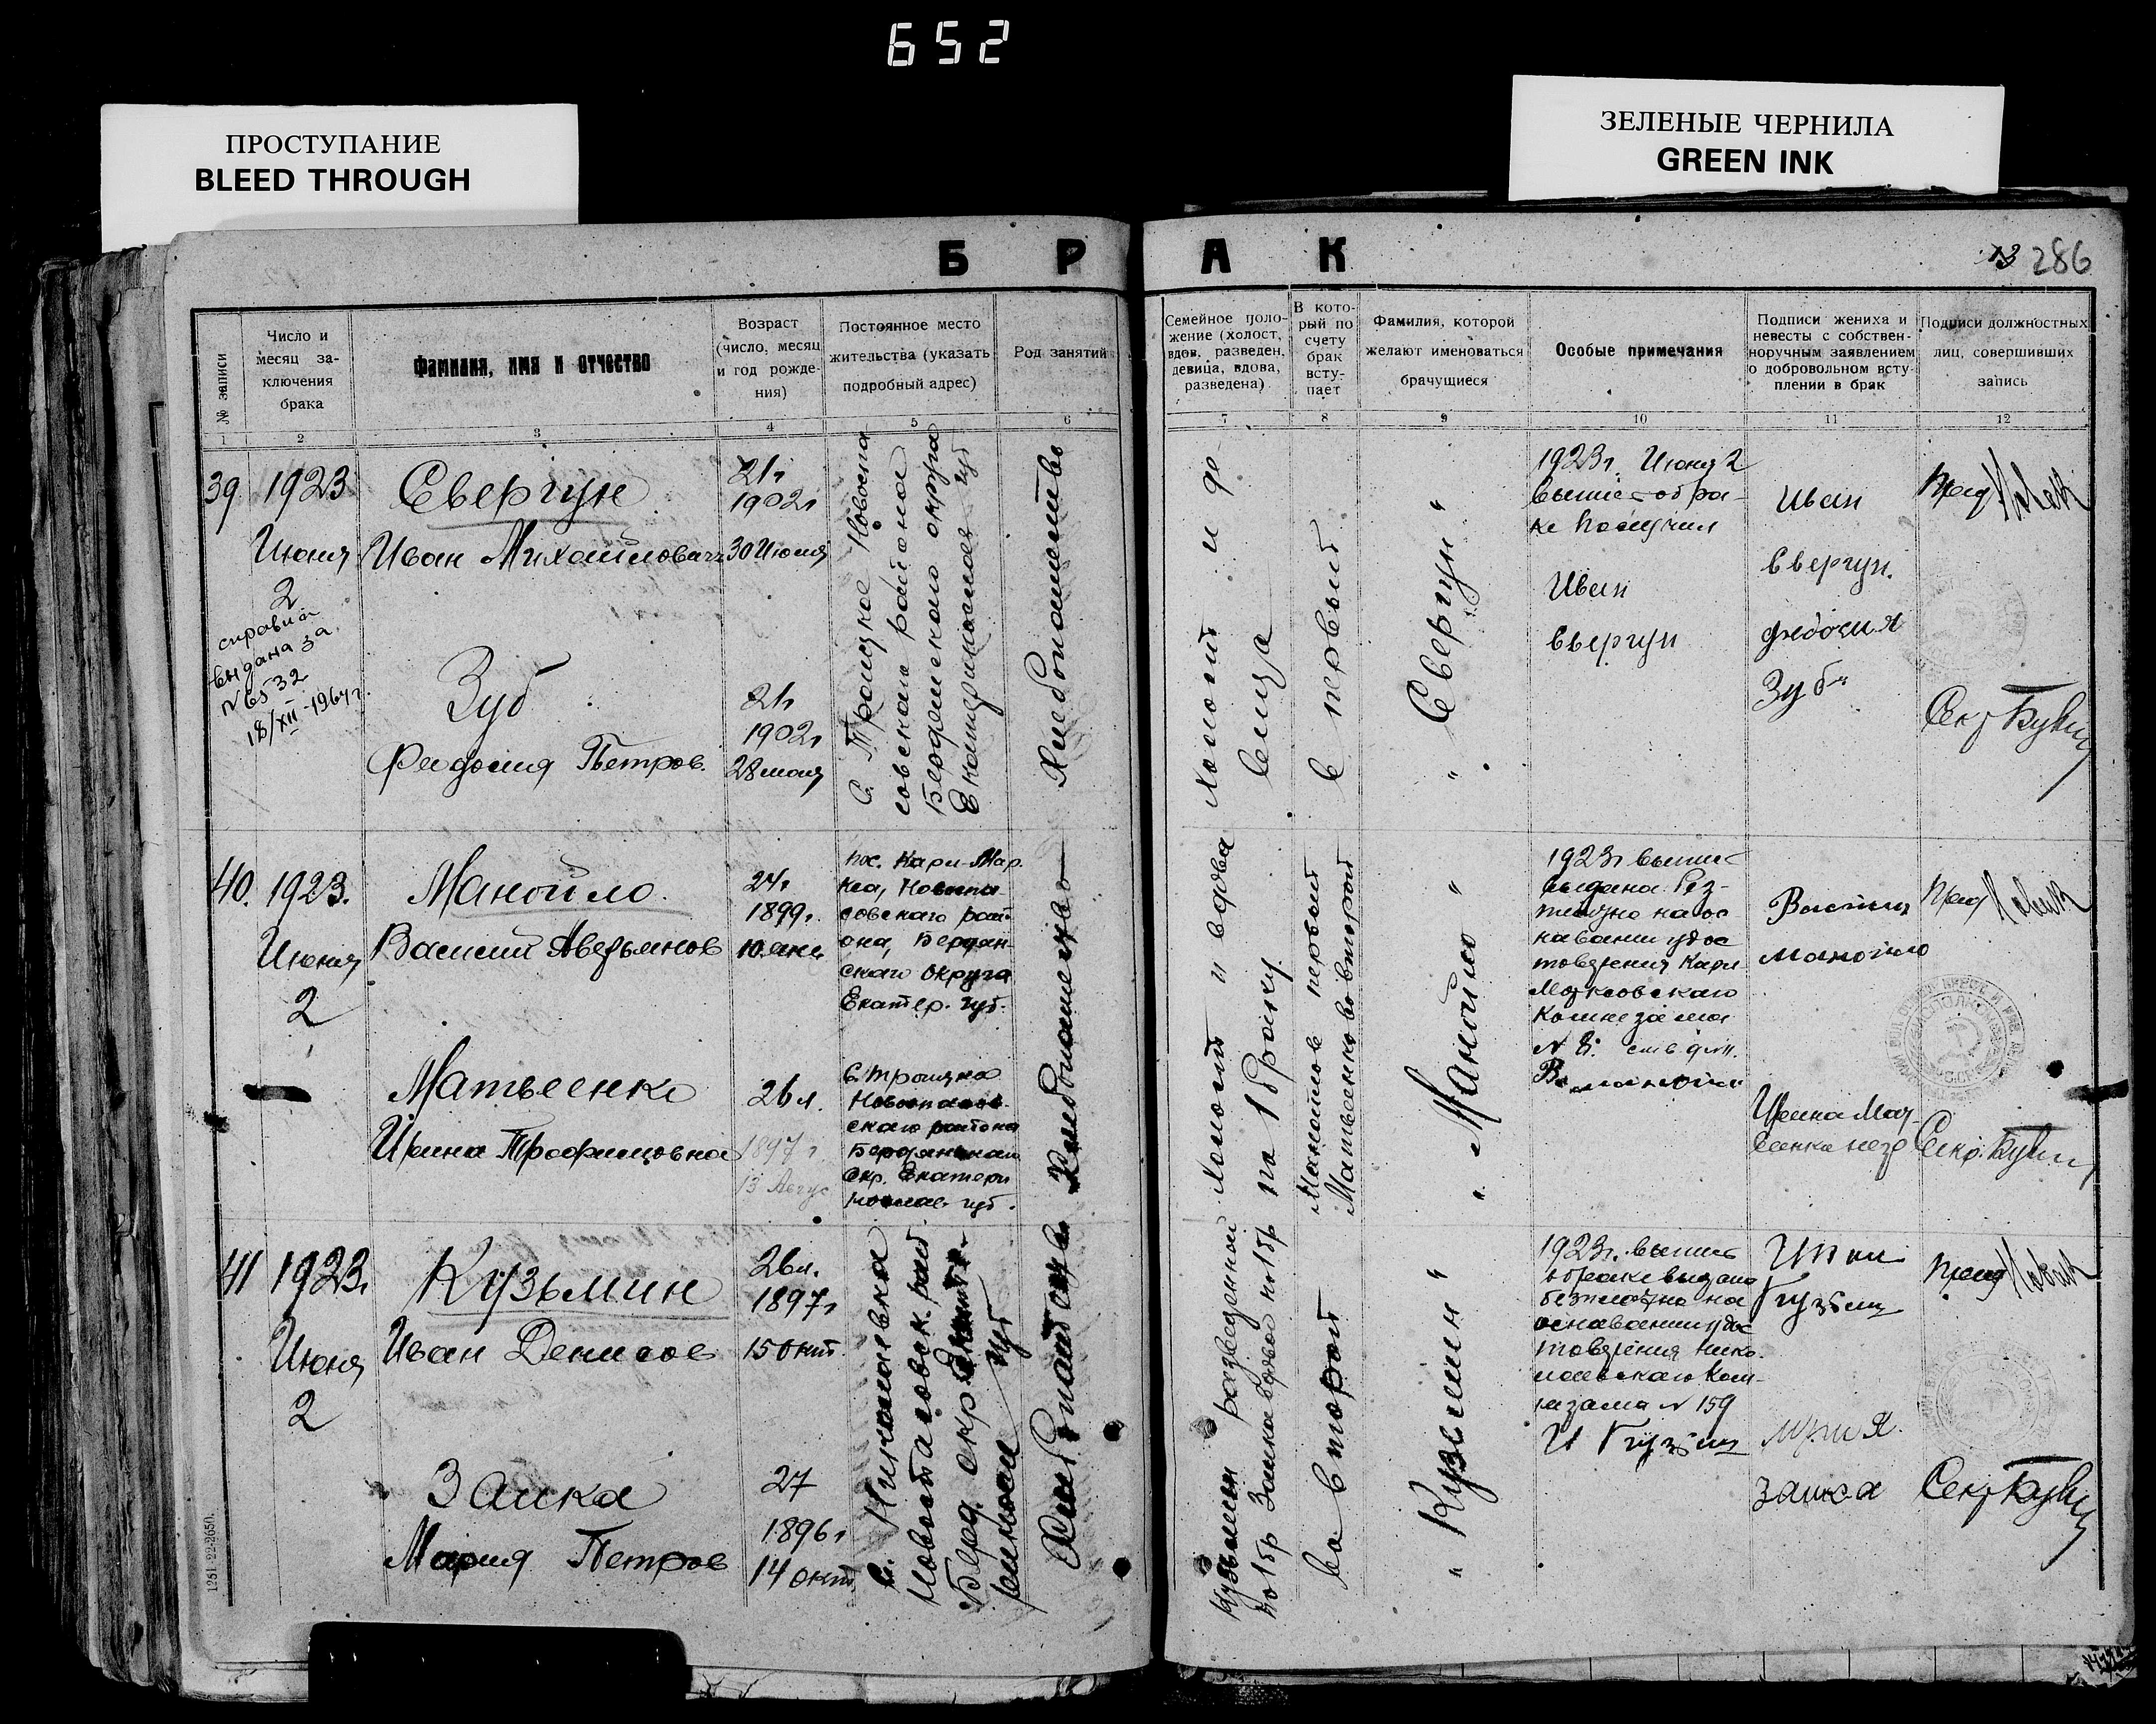 652
ПРОСТУПАНИЕ
BLEED THROUGH
ЗЕЛЕНЫЕ ЧЕРНИЛА
GREEN INK
Б Р А К
13 286
№ записи
Число и
месяц за-
ключения
брака
Фамилия, имя и отчество
Возраст
(число, месяц
и год рожде-
ния)
Постоянное место
жительства (указать
подробный адрес)
Род занятий
Семейное поло-
жение (холост,
вдов, разведен,
девица, вдова,
разведена)
В кото-
рый по
счету
брак
всту-
пает
Фамилия, которой
желают именоваться
брачущиеся
Особые примечания
Подписи жениха и
невесты с собствен-
норучным заявлением
о добровольном всту-
плении в брак
Подписи должностных
лиц, совершивших
запись
1 2 3 4 5 6 7 8 9 10 11 12
39
1923
Июня
2
справка
выдана за
N 6532
18/XII-1964г.
Свергун
Иван Михайлович
21г
1902г
30 Июля
Зуб
Федосия Петров.
21г
1902г
28 мая
С. Троицкое Новоспа
совскаго района
Бердянскаго округа
Екатеринослав губ
Хлебопашество
Холостой и де-
вица
в первый
" Свергун "
1923г. Июня 2
выпись о бра-
ке получил
Иван
Свергун
Иван
Свергун.
Федосия
Зуб
Пред
Секр
40.
1923.
Июня
2
Манойло.
Василий Аверьянов
24г
1899г.
10. янв
пос. Карл-Мар.
кса, Новоспа
совскаго рай-
она, Бердян-
скаго Округа
Екатер. губ.
Матвеенко
Ирина Трофимовна
26 л.
1897 г
13 Авгус
С. Троицкое
Новоспасов-
скаго района
Бердянскаго
Окр. Екатери
нослав губ.
Хлебопашество
Холостой и вдова
по 1 браку
Манойлов первый
Матвеенко во второй
" Манойло "
1923г выпись
выдана без-
платно на ос
новании удос
товерения Карл
Марксовскаго
Комнезама
N 8.
Василий
Манойло
Ирина Мат
веенко негр
Пред
Секр.
41
1923г
Июня
2
Кузьмин
Иван Денисов
26 л.
1897г
15 Окт.
Заика
Мария Петров
27
1896г
14 окт.
С. Николаевка
Новоспасовск. рай
Берд. окр. Екате-
ринослав губ
Хлебопашество
Кузьмин разведенный
по 1 бр Заика вдова по 1 бр
во второй
" Кузьмин "
1923г. выпись
о браке выдана
безплатно на
основании удос
товерения Нико
лаевскаго Ком-
незама N 159
Мрия
Заика
Пред
Секр
1251-22-2650.